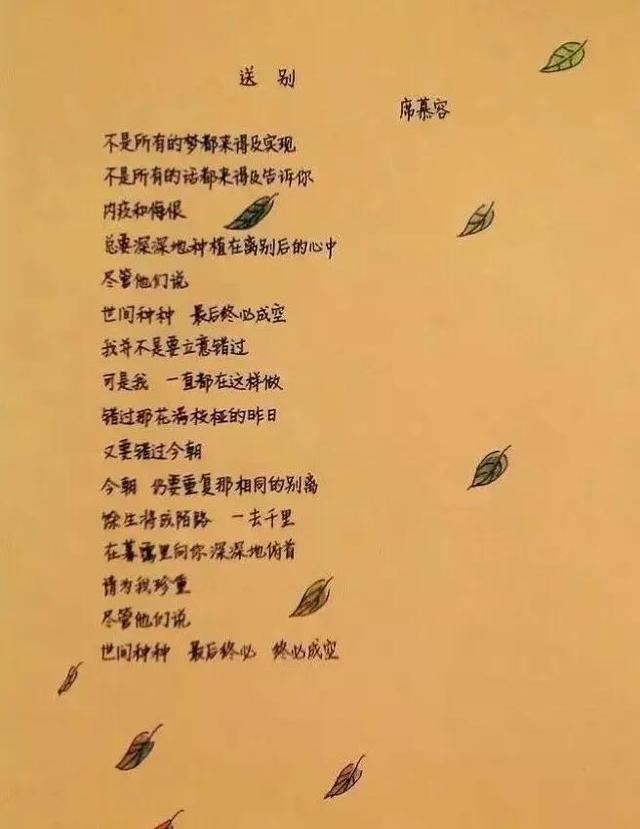 送 别
席慕容
不是所有的梦都来得及实现
不是所有的话都来得及告诉你
内疚和悔恨
总要深深地种植在离别后的心中
尽管他们说
世间种种 最后终必成空
我并不是要立意错过
可是我 一直都在这样做
错过那花满枝桠的昨日
又要错过今朝
今朝 仍要重复那相同的别离
馀生将成陌路 一去千里
在暮霭里向你深深地俯首
请为我珍重
尽管他们说
世间种种 最后终必 终必成空